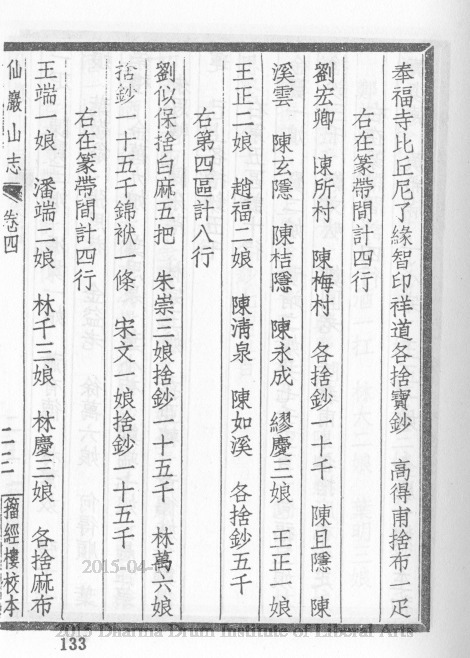 奉福寺比丘尼了緣智印祥道各捨寶鈔　高得甫捨布一疋
右在篆帶間計四行
劉宏卿　陳所村　陳梅村　各捨鈔一十千　陳且隱　陳
溪雲　陳玄隱　陳桔隱　陳永成　繆慶三娘　王正一娘
王正二娘　趙福二娘　陳清泉　陳如溪　各捨鈔五千
右第四區計八行
劉似保捨白麻五把　朱崇三娘捨鈔一十五千　林萬六娘
捨鈔一十五千錦袱一條　宋文一娘捨鈔一十五千
右在篆帶間計四行
王端一娘　潘端二娘　林千三娘　林慶三娘　各捨麻布
仙巖山志　卷四　二二　籀經樓校本
2015-04-
2015 Dharma Drum Institute of Liberal Arts
133